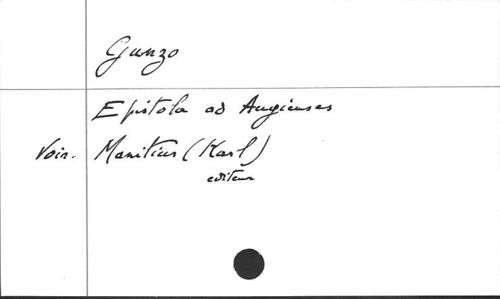 Gunzo
Epistola ad Augienses
Voir. Manitius (Karl)
editeur